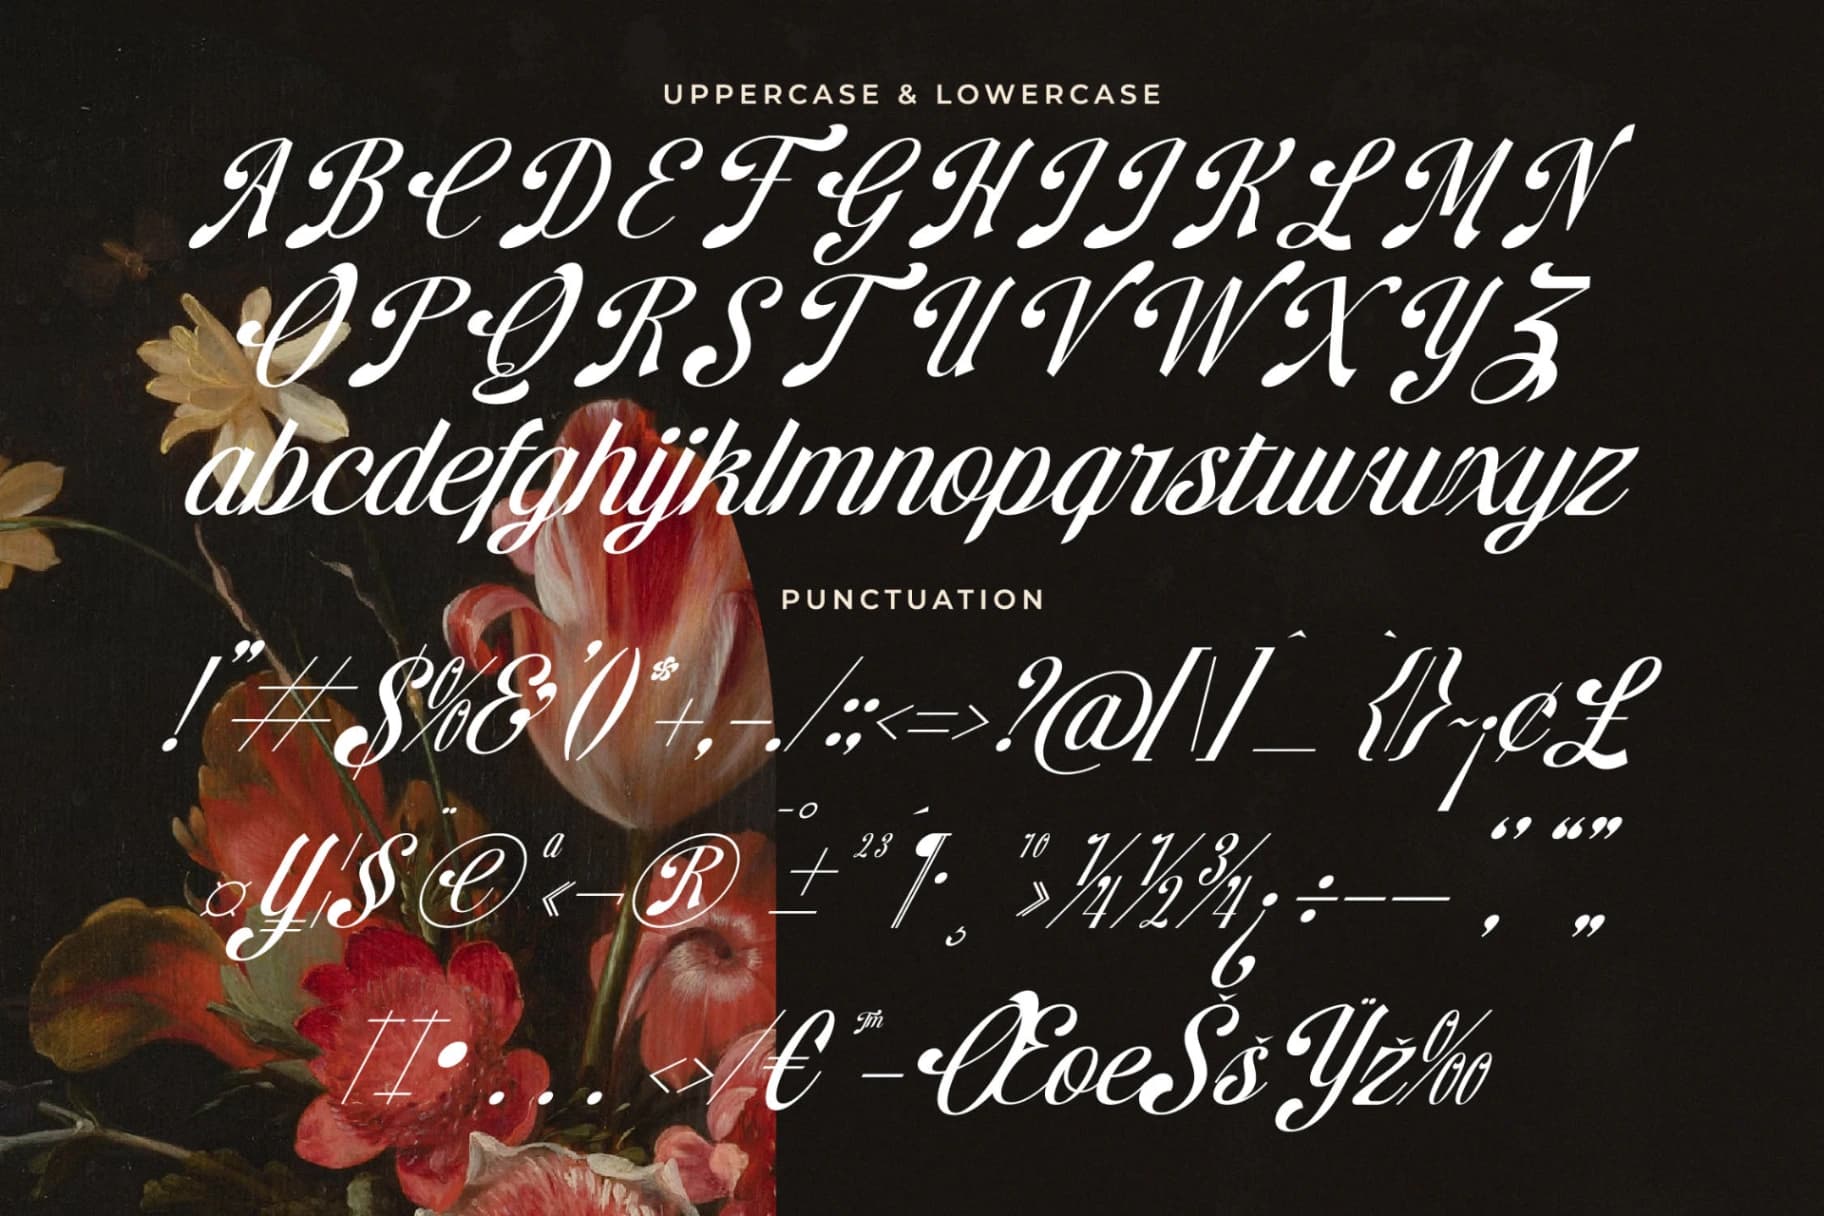 UPPERCASE & LOWERCASE
ABCDEFGHIJKLMN
OPQRSTUVWXYZ
abcdefghijklmnopqrstuvwxyz
PUNCTUATION
!"#$%&'()*+,-./:;<=>?@[\]^_`{|}~¡¢£
¤¥¦§¨©ª«¬®¯°±²³´¶·¸¹º»¼½¾¿÷–—‘’‚“”„
†‡•…‹›⁄€™−ŒœŠšŸž‰